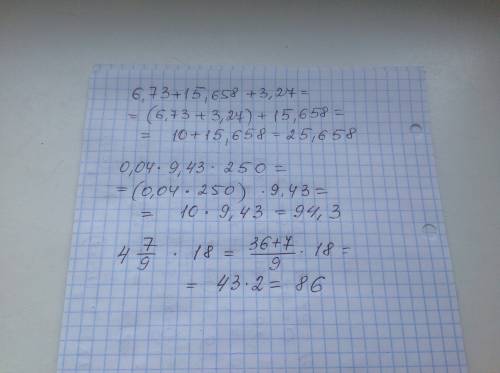 6,73+15,658+3,27=
=(6,73+3,27)+15,658=
= 10+15,658=25,658
0,04·9,43·250=
=(0,04·250)·9,43=
= 10·9,43=94,3
4 7/9 · 18 = (36+7)/9 · 18 =
= 43·2= 86